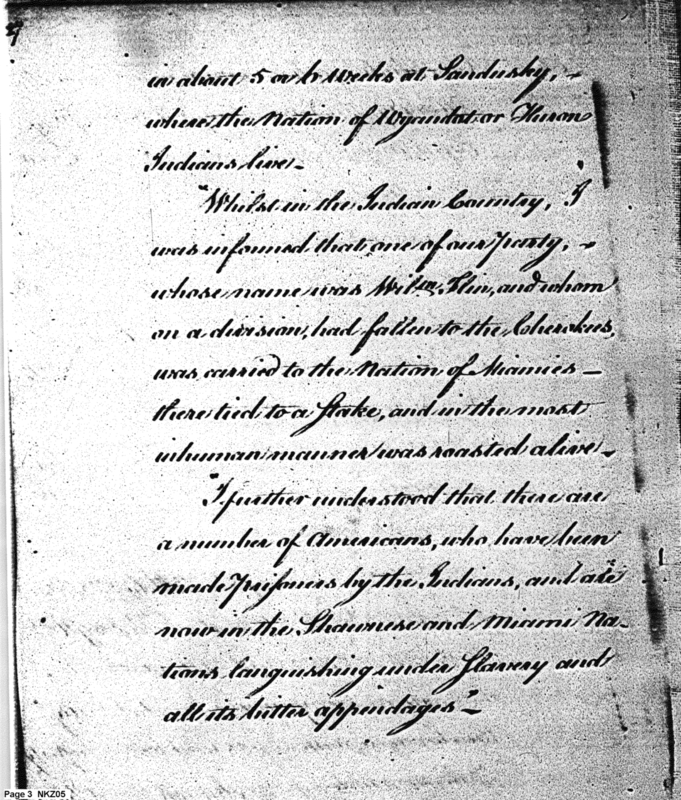 in about 5 or 6 Weeks at Sandusky, –
where the Nation of Wyandot or Huron
Indians live –
"Whilst in the Indian Country, I
was informed that one of our Party, –
whose name was Wilm. Flin, and whom
on a division, had fallen to the Cherokees,
was carried to the Nation of Miamies –
there tied to a Stake, and in the most
inhuman manner was roasted alive –
"I further understood that there are
a number of Americans, who have been
made Prisoners by the Indians, and are
now in the Shawnese and Miami Na-
tions languishing under Slavery and
all its bitter appendages" –
Page 3 NKZ05